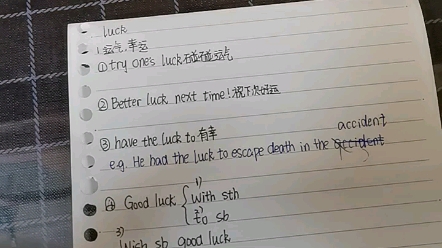 luck
1 运气,幸运
① try one's luck 碰碰运气
② Better luck next time! 祝下次好运
③ have the luck to 有幸
accident
e.g. He had the luck to escape death in the
④ Good luck { 1) with sth
2) to sb
3) Wish sb good luck